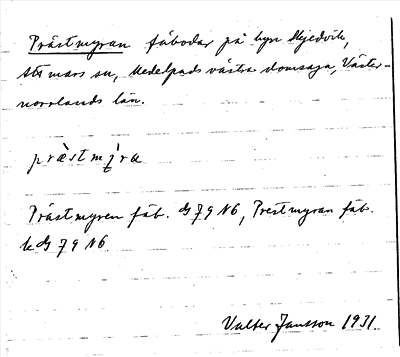 Prästmyran fäbodar på byn Mjedvik,
Attmars sn, Medelpads västra domsaga, Väster-
norrlands län.
Prästmyren fäb. G79 N6, Prestmyran fäb.
79 N6
Valter Jansson 1931.